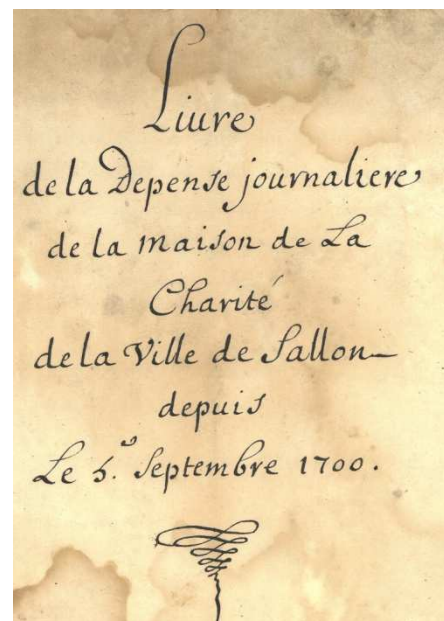 Liure
de la Depense journaliere
de la maison de La
Charité
de la Ville de Sallon
depuis
Le 5.e Septembre 1700.